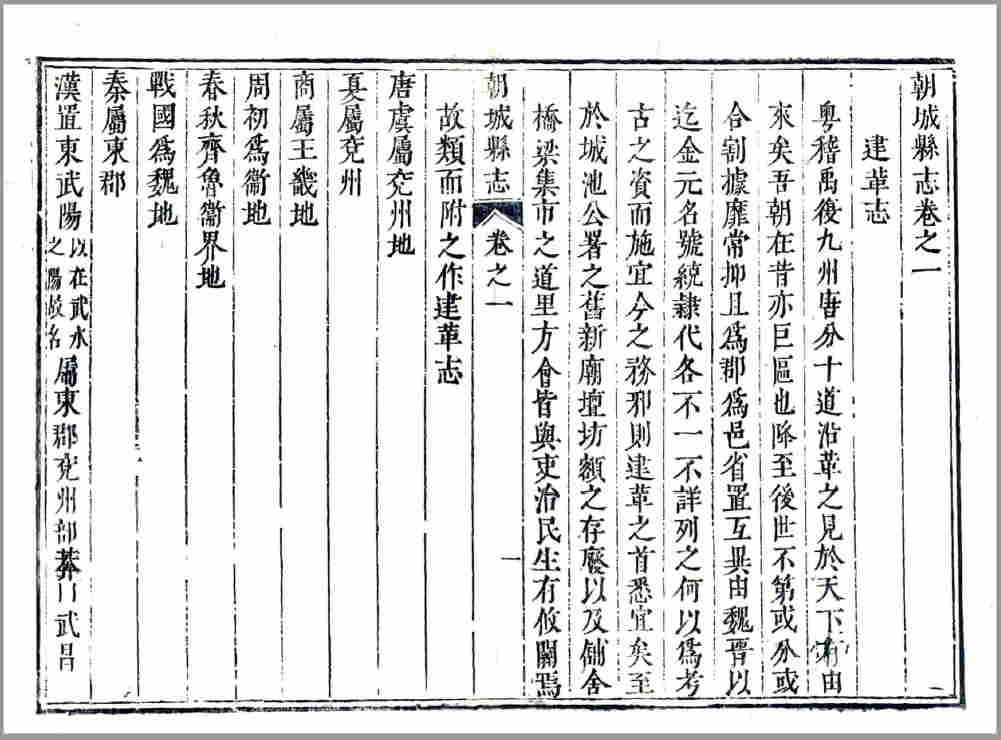 朝城縣志卷之一
建革志
粵稽禹後九州唐分十道沿革之見於天下有由
來矣吾朝在昔亦巨區也降至後世不第或分或
合割據靡常抑且爲郡爲邑省置互異由魏晋以
迄金元名號統隸代各不一不詳列之何以爲考
古之資而施宜今之務邪則建革之首悉宜矣至
於城池公署之舊新廟壇坊額之存廢以及舖舍
橋梁集市之道里方會皆與吏治民生有攸關焉
朝城縣志
卷之一
一
故類而附之作建革志
唐虞屬兖州地
夏屬兖州
商屬王畿地
周初爲衞地
春秋齊魯衞界地
戰國爲魏地
秦屬東郡
漢置東武陽以在武水之陽故名屬東郡兖州部莽曰武昌